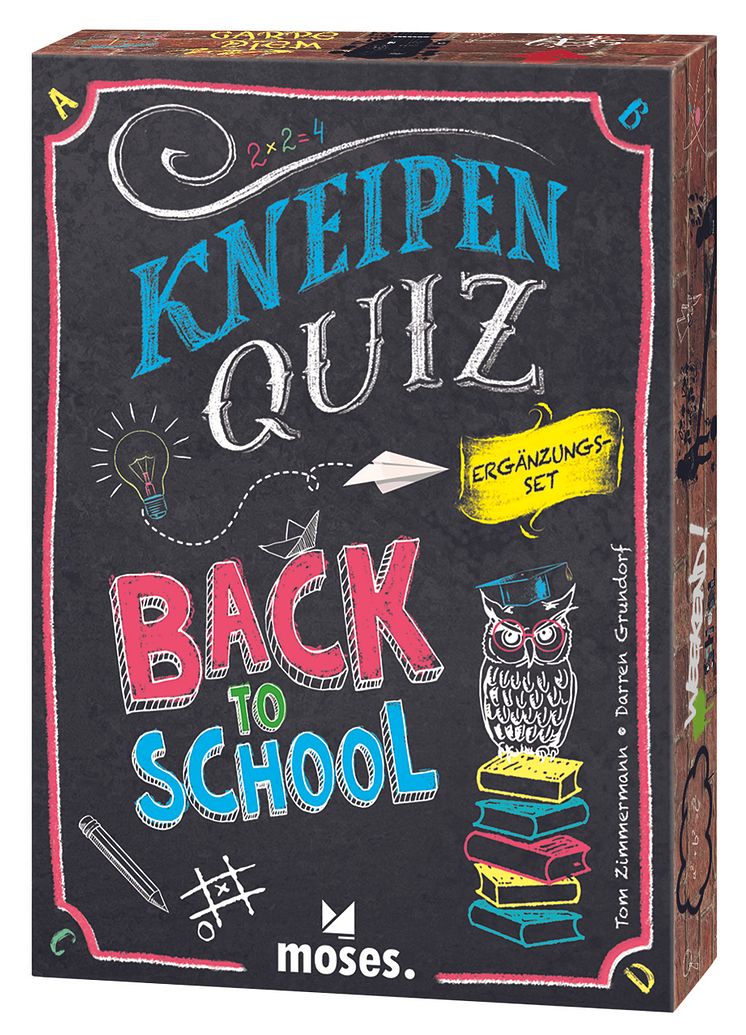 CARPE
DIEM
A
B
2×2=4
KNEIPEN
QUIZ
ERGÄNZUNGS-
SET
BACK
TO
SCHOOL
Tom Zimmermann • Darren Grundorf
WEEKEND!
x
C
D
moses.